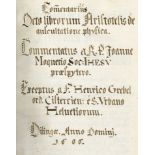 Comentarius
Octo librorum Aristotelis de
auscultatione physica.
Commentatus a R.P. Joanne
Mognerio Soc: IHESV
præsbytero.
Exceptus a F. Henrico Grebel
ord. Cisterciens: e S. Urbano
Helvetiorum.
Dilingæ, Anno Domini,
1606.